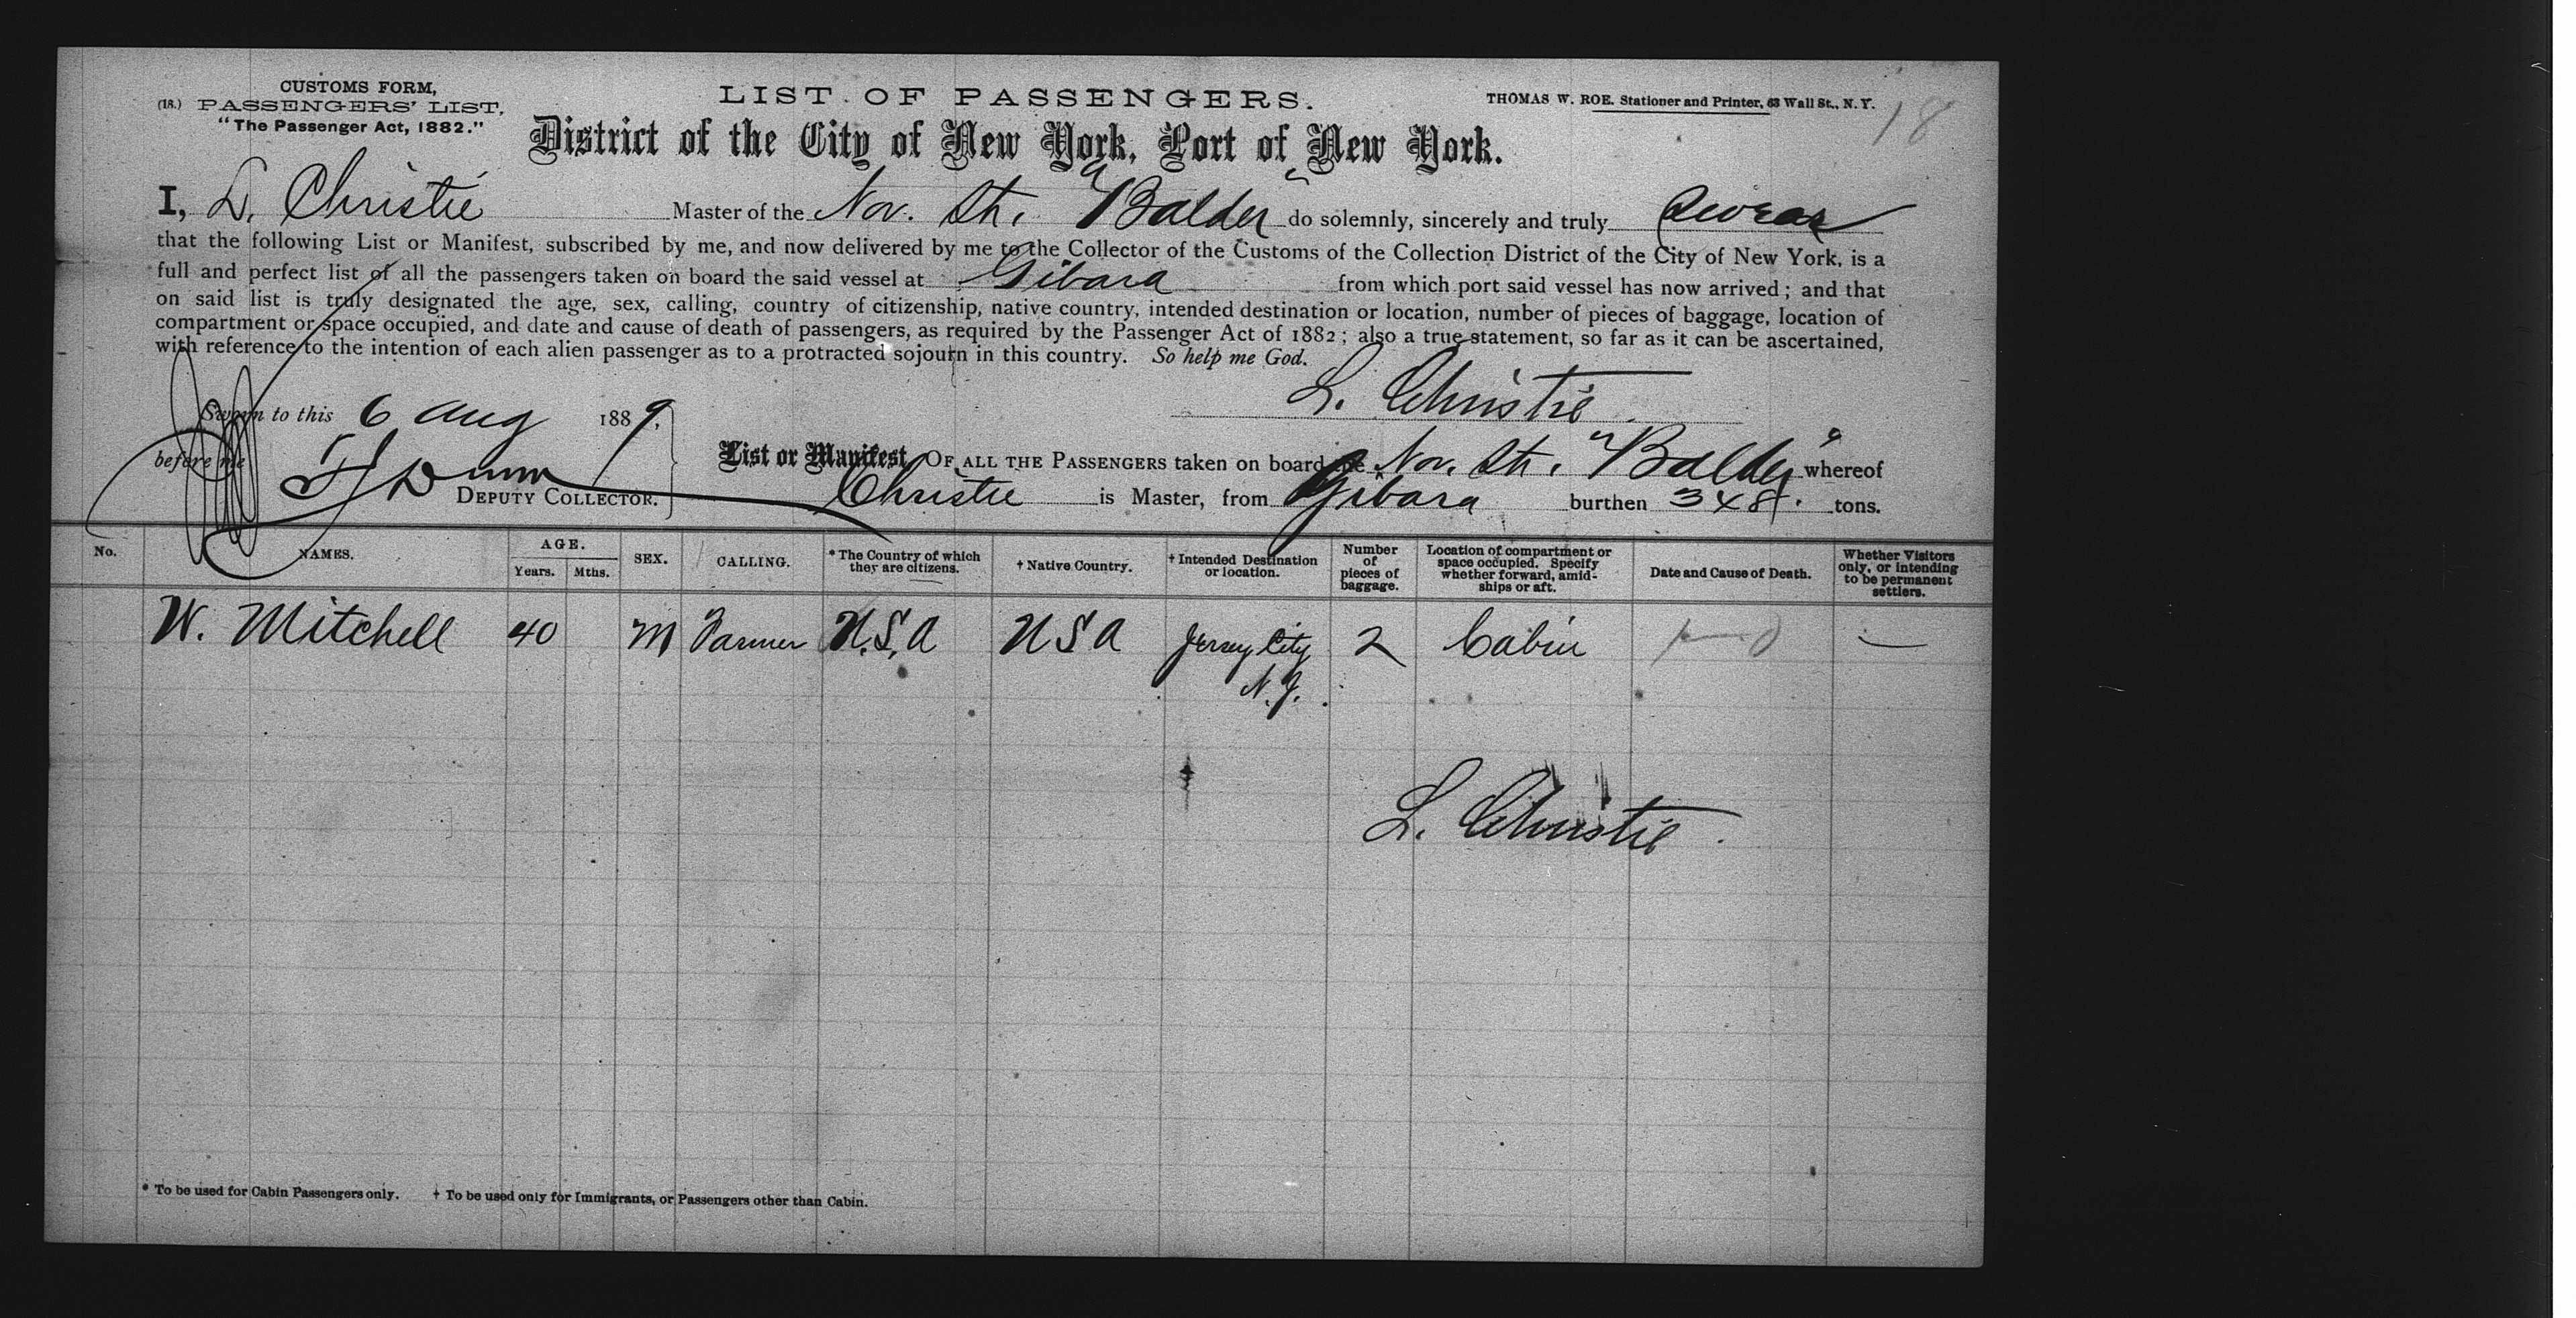 CUSTOMS FORM,
(18.) PASSENGERS' LIST,
"The Passenger Act, 1882."
LIST OF PASSENGERS.
THOMAS W. ROE. Stationer and Printer, 63 Wall St., N. Y.
18
District of the City of New York, Port of New York.
I, L. Christie Master of the Nor. Str. "Balder" do solemnly, sincerely and truly swear
that the following List or Manifest, subscribed by me, and now delivered by me to the Collector of the Customs of the Collection District of the City of New York, is a
full and perfect list of all the passengers taken on board the said vessel at Gibara from which port said vessel has now arrived; and that
on said list is truly designated the age, sex, calling, country of citizenship, native country, intended destination or location, number of pieces of baggage, location of
compartment or space occupied, and date and cause of death of passengers, as required by the Passenger Act of 1882; also a true statement, so far as it can be ascertained,
with reference to the intention of each alien passenger as to a protracted sojourn in this country. So help me God.
L. Christie
Sworn to this 6 Aug 1889,
before me
Dunn
DEPUTY COLLECTOR.
List or Manifest OF ALL THE PASSENGERS taken on board the Nor. Str. "Balder" whereof
Christie is Master, from Gibara burthen 348. tons.
No. NAMES. AGE. Years. Mths. SEX. CALLING. * The Country of which they are citizens. † Native Country. † Intended Destination or location. Number of pieces of baggage. Location of compartment or space occupied. Specify whether forward, amid-ships or aft. Date and Cause of Death. Whether Visitors only, or intending to be permanent settlers.
W. Mitchell 40 M Farmer U.S.A USA Jersey City 2 Cabin —
N.J.
L. Christie
* To be used for Cabin Passengers only. † To be used only for Immigrants, or Passengers other than Cabin.